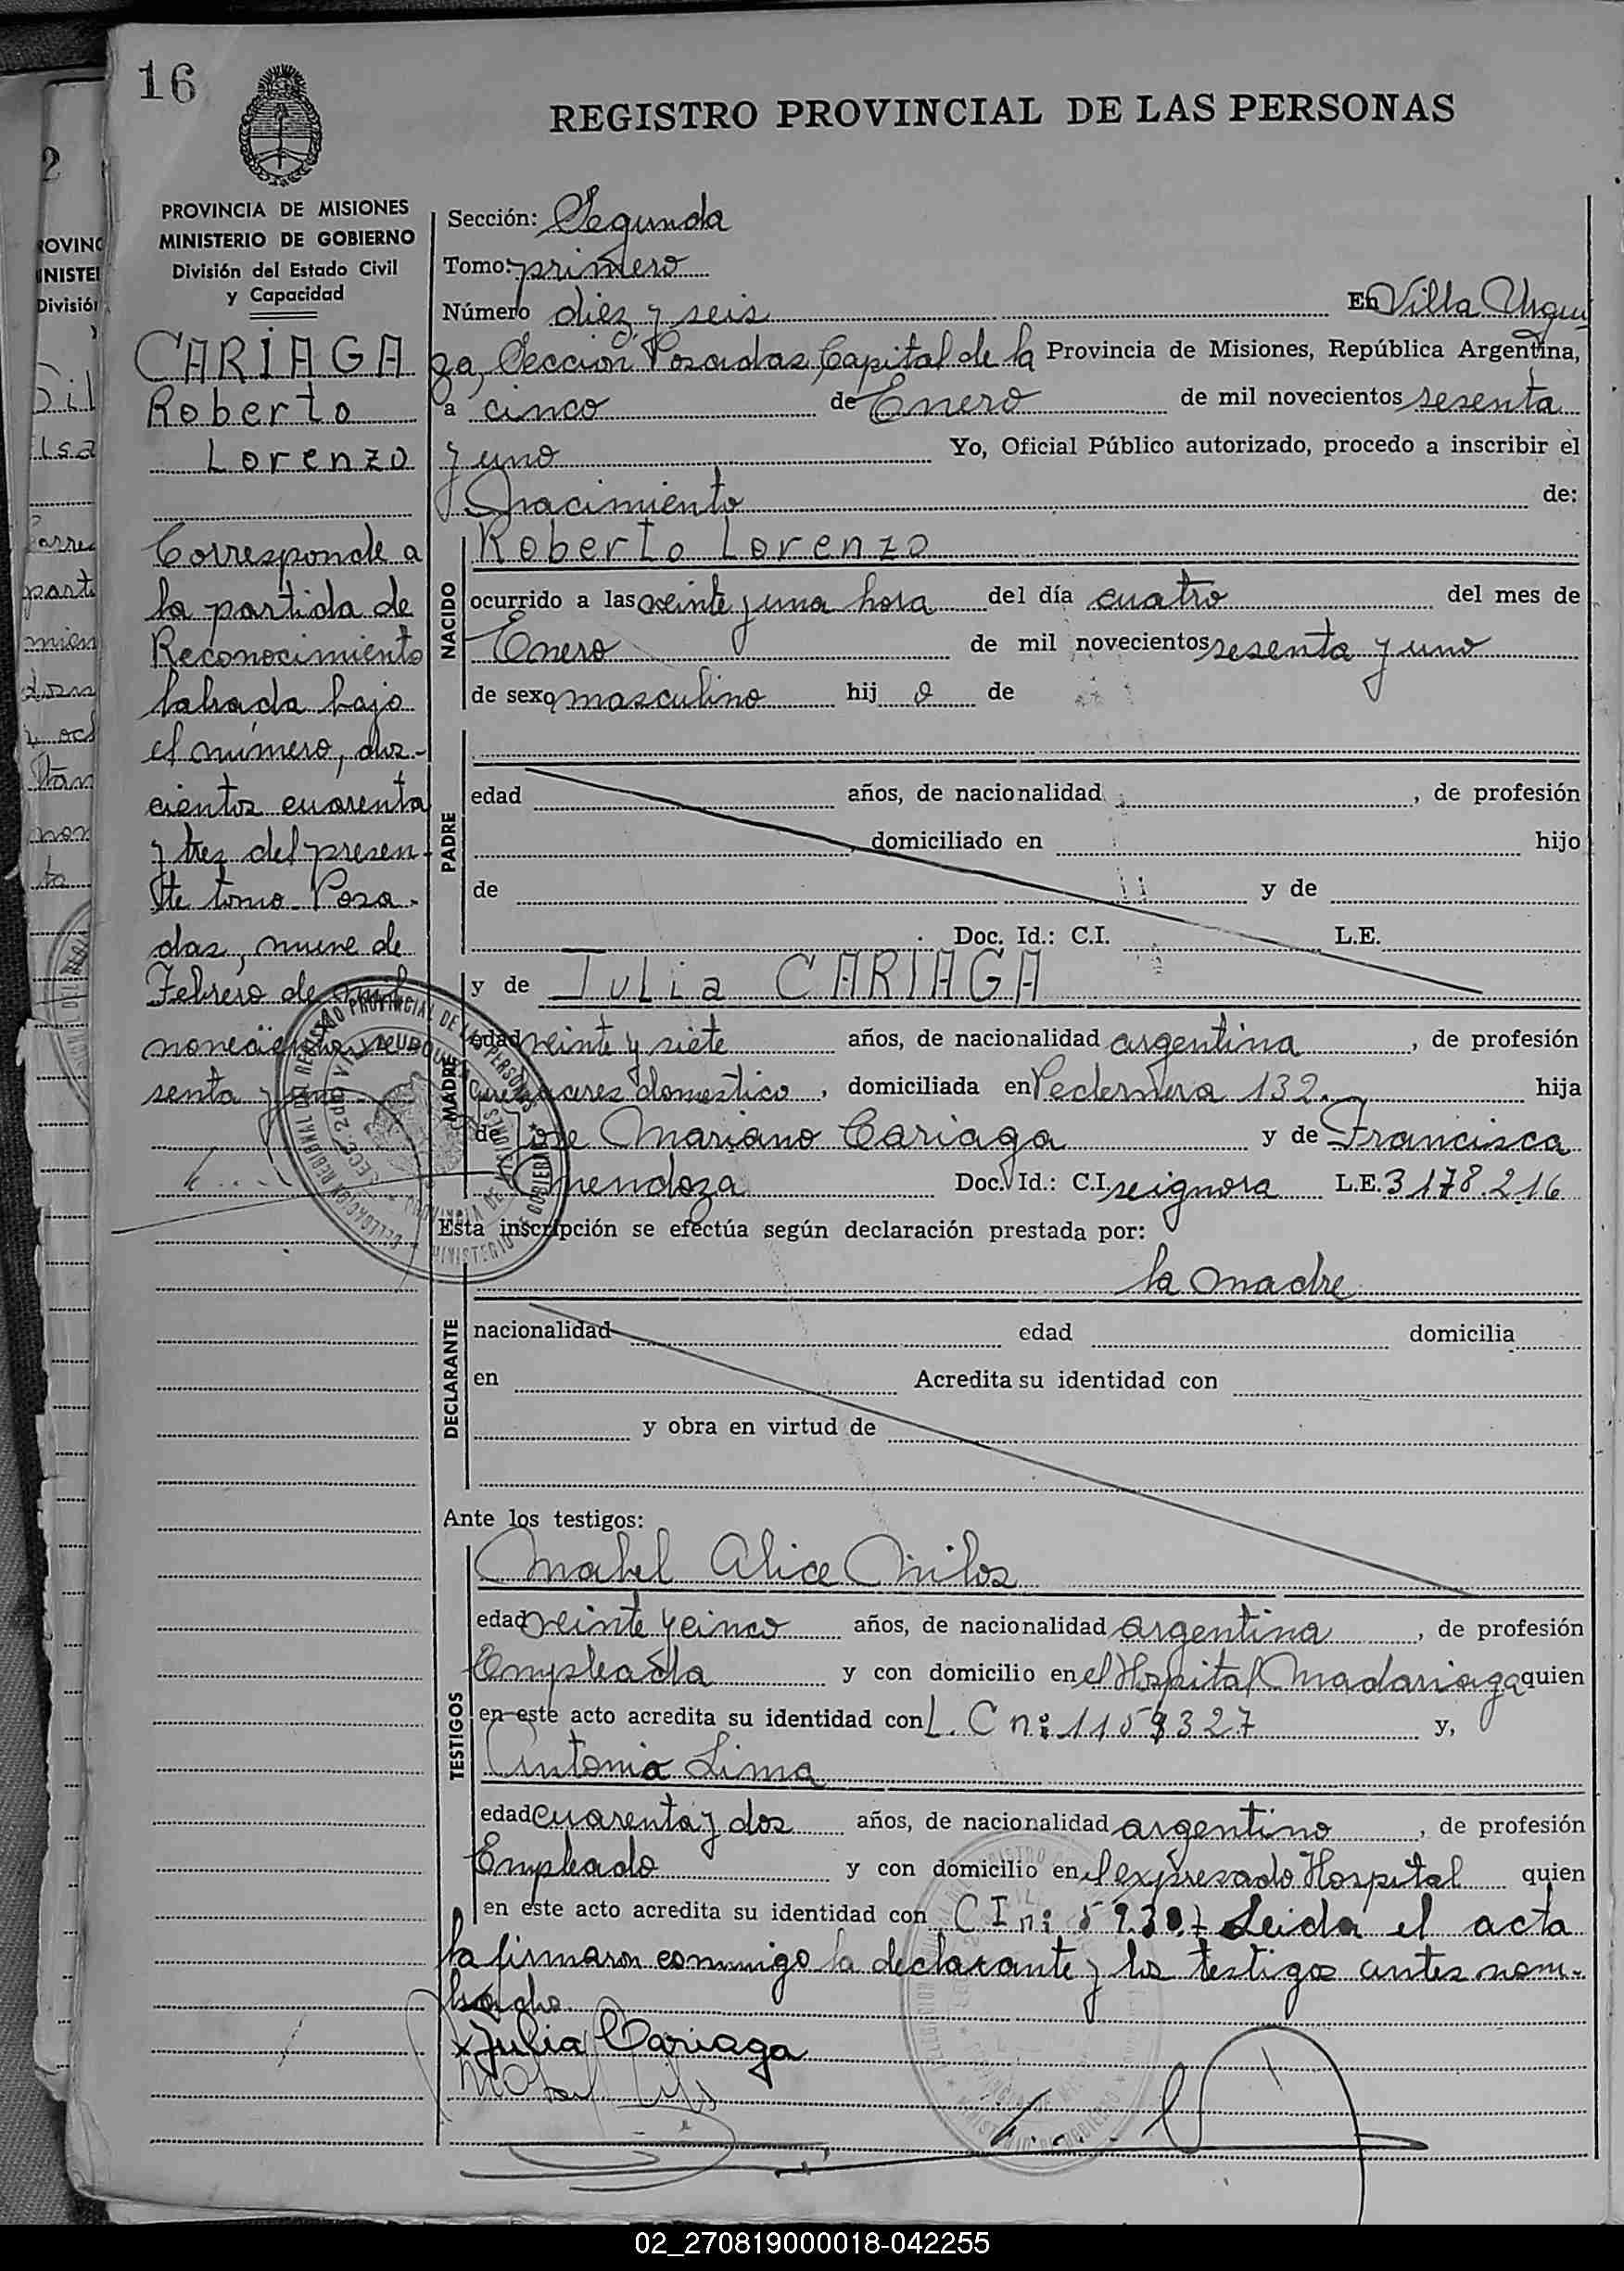 16
REGISTRO PROVINCIAL DE LAS PERSONAS
PROVINCIA DE MISIONES
MINISTERIO DE GOBIERNO
División del Estado Civil
y Capacidad
CARIAGA
Roberto
Lorenzo
Corresponde a
la partida de
Reconocimiento
labrada bajo
el número, dos-
cientos cuarenta
y tres del presen-
te tomo. Posa-
das, nueve de
Febrero de mil
novecientos se
senta y uno
Sección: Segunda
Tomo: primero
Número diez y seis En Villa Urqui
za, Sección Posadas, Capital de la Provincia de Misiones, República Argentina,
a cinco de Enero de mil novecientos sesenta
y uno Yo, Oficial Público autorizado, procedo a inscribir el
Nacimiento de:
NACIDO
Roberto Lorenzo
ocurrido a las veinte y una hora del día cuatro del mes de
Enero de mil novecientos sesenta y uno
de sexo masculino hij o de
PADRE
edad años, de nacionalidad , de profesión
, domiciliado en hijo
de y de
Doc. Id.: C.I. L.E.
MADRE
y de Julia CARIAGA
edad veinte y siete años, de nacionalidad argentina, de profesión
quehaceres domestico, domiciliada en Pedernera 132 hija
de Jose Mariano Cariaga y de Francisca
Mendoza Doc. Id.: C.I. seignora L.E. 3178.216
Esta inscripción se efectúa según declaración prestada por:
la madre
DECLARANTE
nacionalidad edad domicilia
en Acredita su identidad con
y obra en virtud de
Ante los testigos:
TESTIGOS
Mabel Alice Milos
edad veinte y cinco años, de nacionalidad argentina, de profesión
Empleada y con domicilio en el Hospital Madariaga quien
en este acto acredita su identidad con L. C nº y,
Antonio Lima
edad cuarenta y dos años, de nacionalidad argentino, de profesión
Empleado y con domicilio en el expresado Hospital quien
en este acto acredita su identidad con C I nº Leida el acta
la firmaron conmigo la declarante y los testigos antes nom-
brado.
x Julia Cariaga
02_270819000018-042255